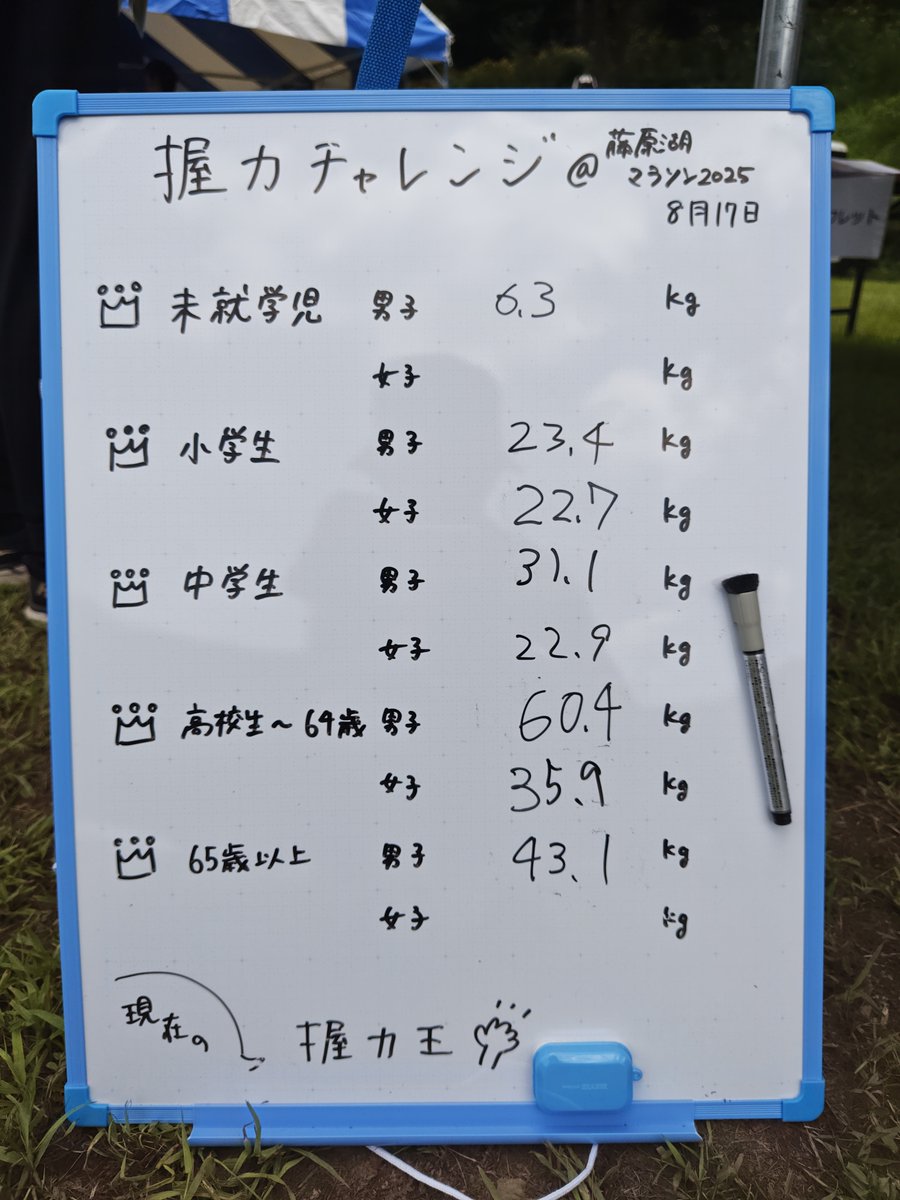 握力チャレンジ@藤原湖
マラソン2025
8月17日
未就学児 男子 6.3 kg
女子 kg
小学生 男子 23.4 kg
女子 22.7 kg
中学生 男子 31.1 kg
女子 22.9 kg
高校生～64歳 男子 60.4 kg
女子 35.9 kg
65歳以上 男子 43.1 kg
女子 kg
現在の
握力王